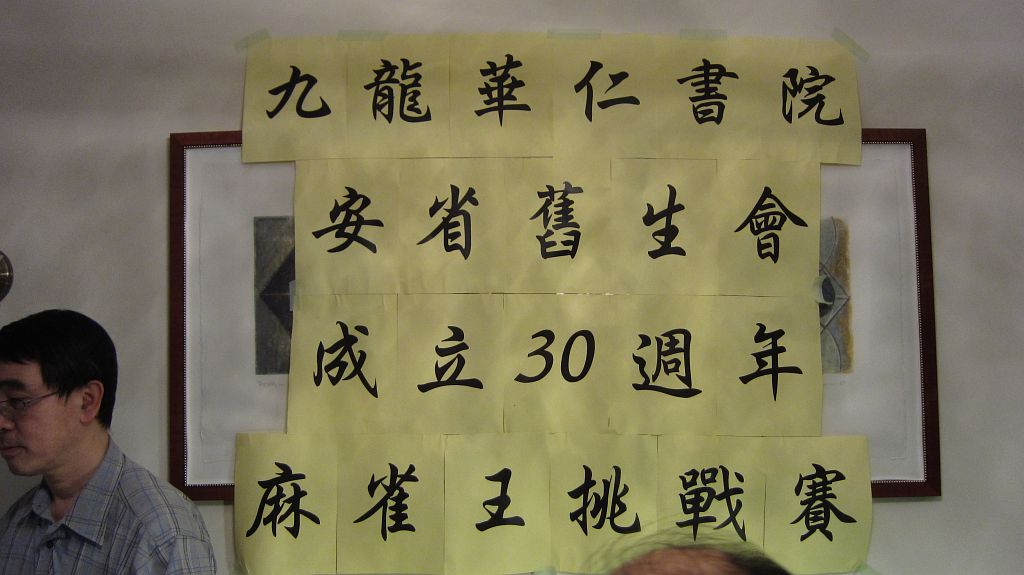 九龍華仁書院
安省舊生會
成立30週年
麻雀王挑戰賽